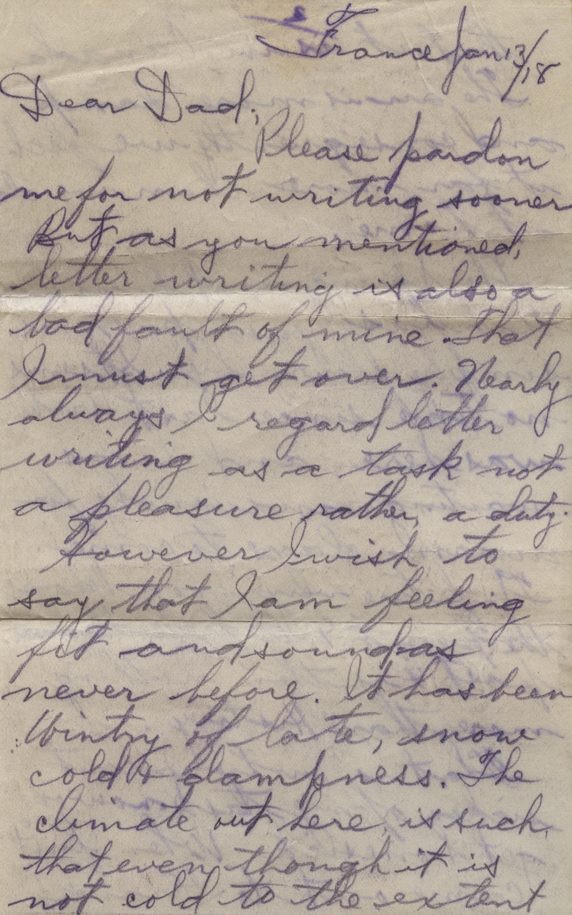 France Jan 13/18
Dear Dad;
Please pardon
me for not writing sooner
But as you mentioned,
letter writing is also a
bad fault of mine. That
I must get over. Nearly
always I regard letter
writing as a task not
a pleasure rather, a duty.
However I wish to
say that I am feeling
fit and sound as
never before. It has been
Wintry of late, snow
cold & dampness. The
climate out here, is such,
that even though it is
not cold to the extent